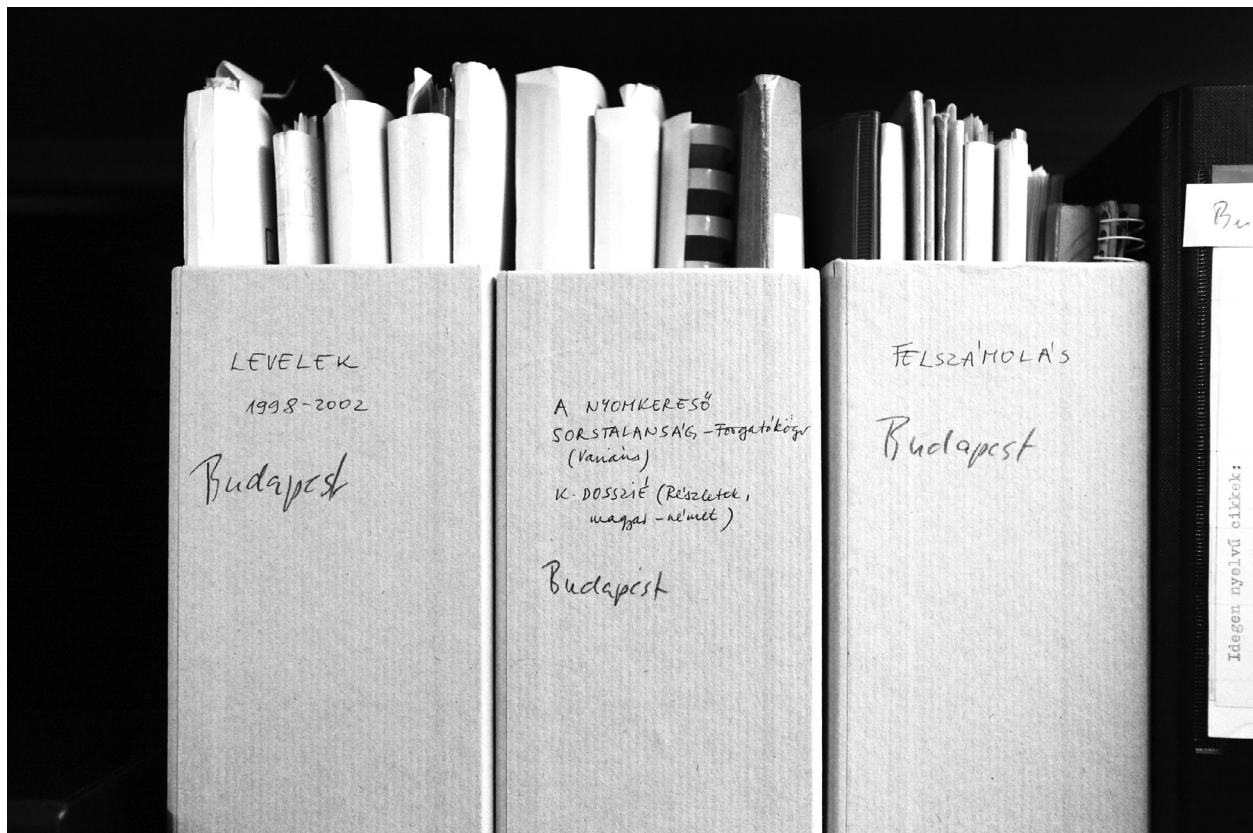 LEVELEK
1998-2002
Budapest
A NYOMKERESŐ
SORSTALANSÁG - Forgatókönyv
(Variáns)
K. DOSSZIÉ (Részletek,
magyar - német)
Budapest
FELSZÁMOLÁS
Budapest
Bu
Idegen nyelvű cikkek: